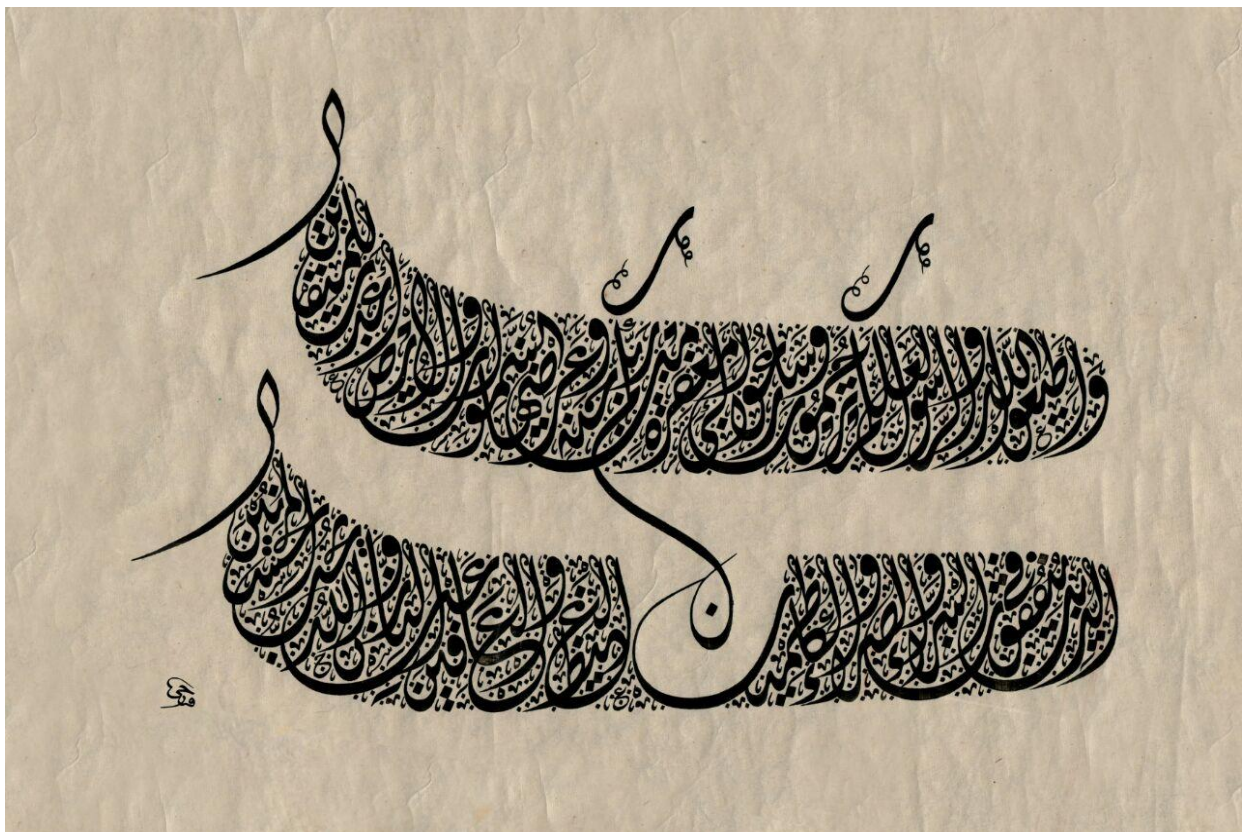 وأطيعوا الله والرسول لعلكم ترحمون وسارعوا إلى مغفرة من ربكم وجنة عرضها السموات والأرض أعدت للمتقين
الذين ينفقون في السراء والضراء والكاظمين الغيظ والعافين عن الناس والله يحب المحسنين